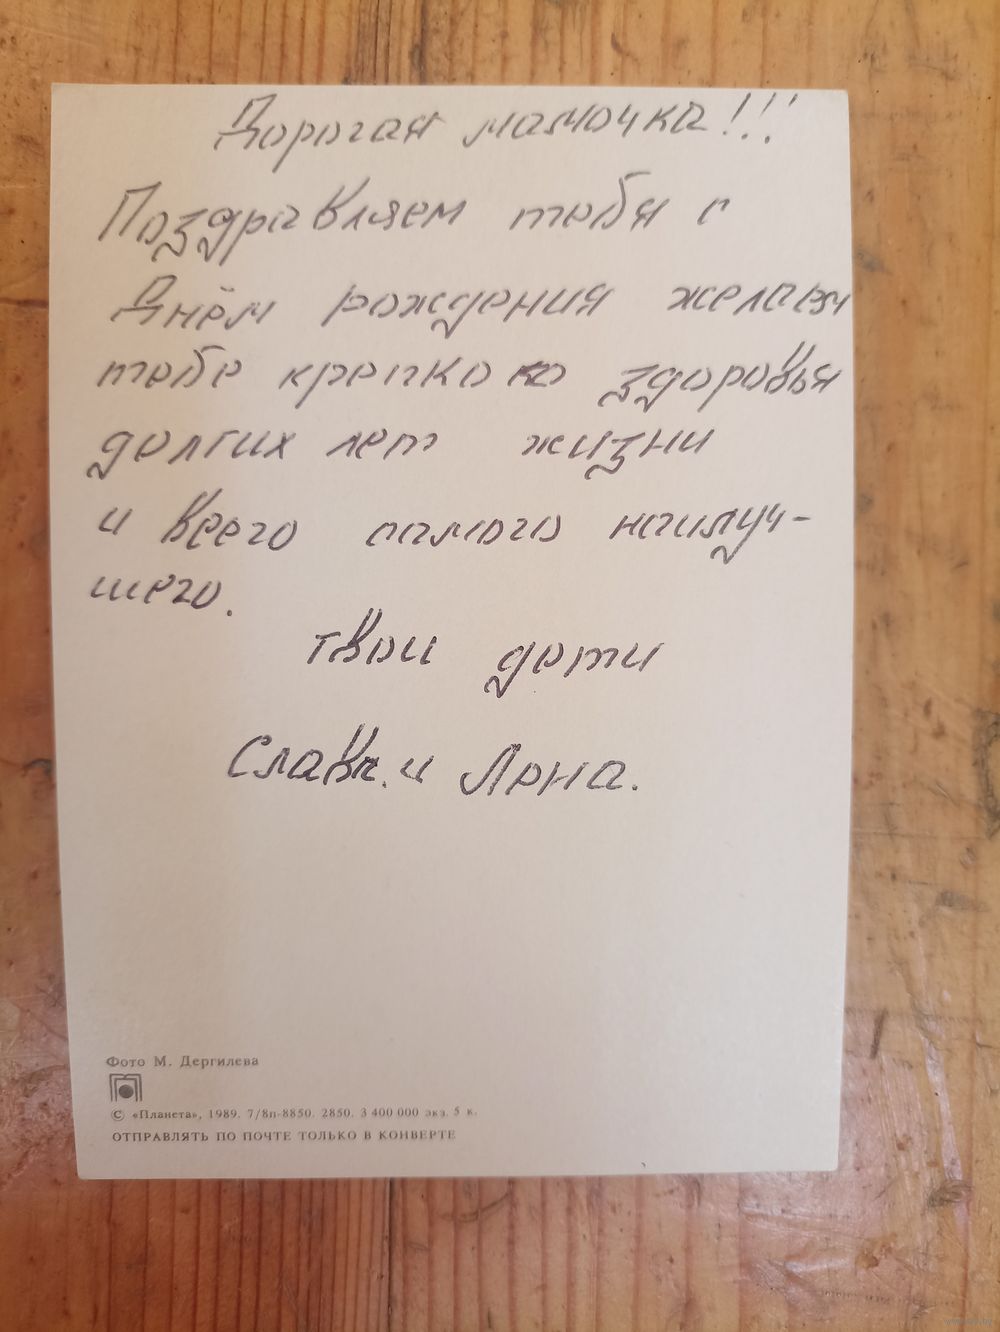 Дорогая мамочка!!!
Поздравляем тебя с
Днём рождения желаем
тебе крепкого здоровья
долгих лет жизни
и всего самого наилуч-
шего.
Твои дети
Слава и Лена.
Фото М. Дергилева
© «Планета», 1989. 7/8п-8850. 2850. 3 400 000 экз. 5 к.
ОТПРАВЛЯТЬ ПО ПОЧТЕ ТОЛЬКО В КОНВЕРТЕ